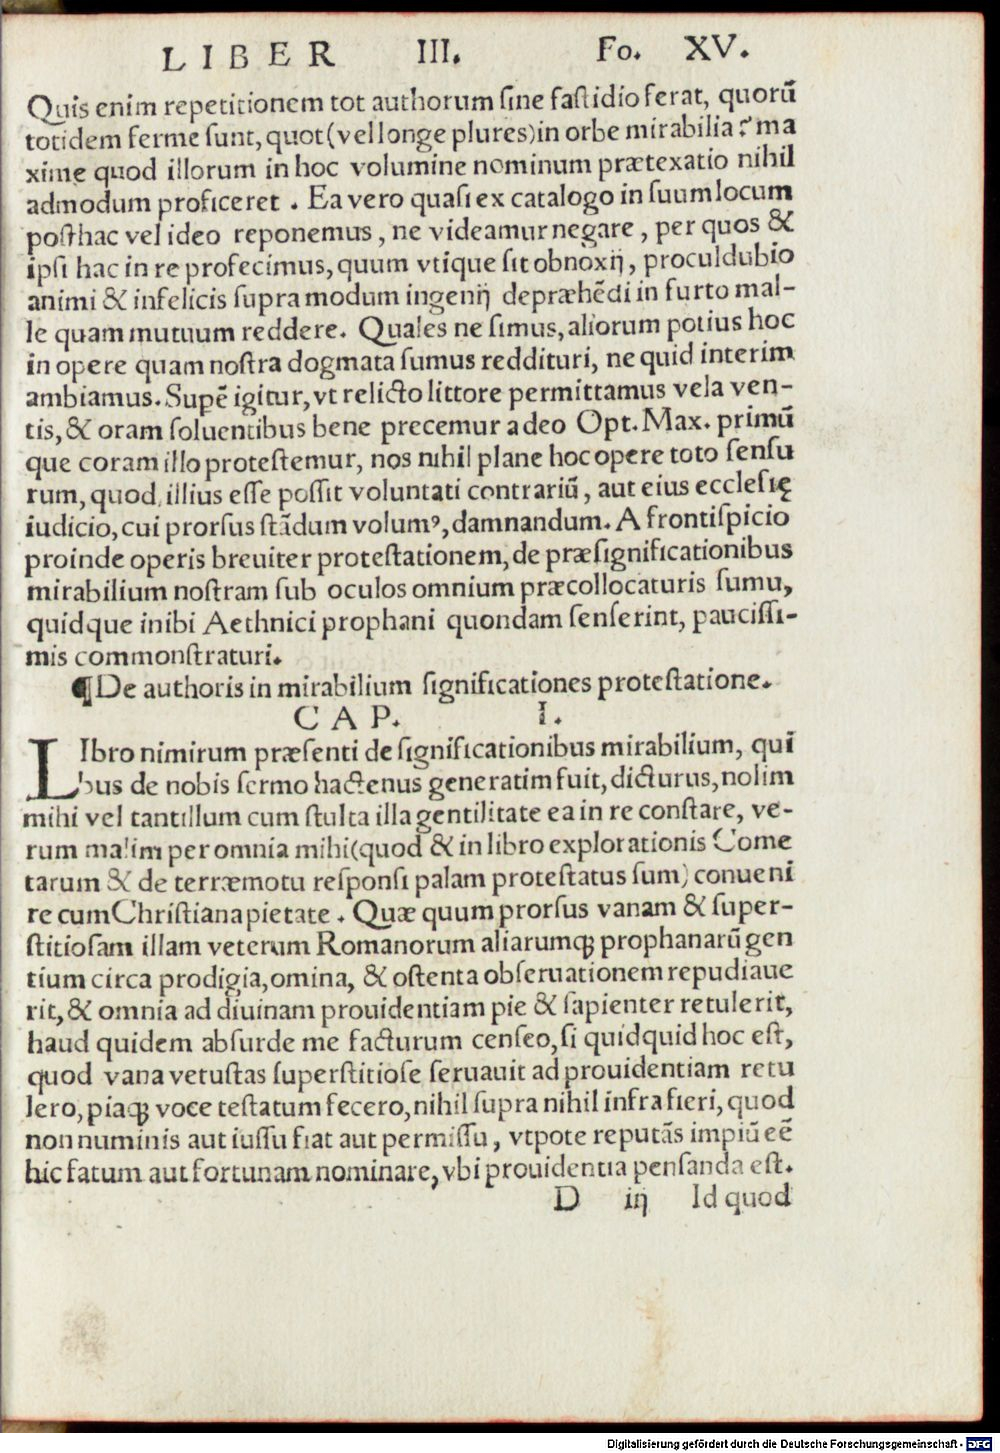 LIBER III. Fo. XV.
Quis enim repetitionem tot authorum ſine faſtidio ferat, quorū
totidem ferme ſunt, quot (vel longe plures) in orbe mirabilia? ma
xime quod illorum in hoc volumine nominum prætexatio nihil
admodum proficeret . Ea vero quaſi ex catalogo in ſuum locum
poſthac vel ideo reponemus, ne videamur negare, per quos &
ipſi hac in re profecimus, quum vtique ſit obnoxij, proculdubio
animi & infelicis ſupra modum ingenij depræhēdi in furto mal-
le quam mutuum reddere. Quales ne ſimus, aliorum potius hoc
in opere quam noſtra dogmata ſumus reddituri, ne quid interim
ambiamus. Supē igitur, vt relicto littore permittamus vela ven-
tis, & oram ſoluentibus bene precemur a deo Opt. Max. primū
que coram illo proteſtemur, nos nihil plane hoc opere toto ſenſu
rum, quod illius eſſe poſſit voluntati contrariū, aut eius eccleſię
iudicio, cui prorſus ſtādum volumꝰ, damnandum. A frontiſpicio
proinde operis breuiter proteſtationem, de præſignificationibus
mirabilium noſtram ſub oculos omnium præcollocaturis ſumu,
quidque inibi Aethnici prophani quondam ſenſerint, pauciſſi-
mis commonſtraturi.
¶De authoris in mirabilium ſignificationes proteſtatione.
CAP. I.
LIbro nimirum præſenti de ſignificationibus mirabilium, qui
bus de nobis ſermo hactenus generatim fuit, dicturus, nolim
mihi vel tantillum cum ſtulta illa gentilitate ea in re conſtare, ve-
rum malim per omnia mihi (quod & in libro explorationis Come
tarum & de terræmotu reſponſi palam proteſtatus ſum) conueni
re cum Chriſtiana pietate . Quæ quum prorſus vanam & ſuper-
ſtitioſam illam veterum Romanorum aliarumꝗ prophanarū gen
tium circa prodigia, omina, & oſtenta obſeruationem repudiaue
rit, & omnia ad diuinam prouidentiam pie & ſapienter retulerit,
haud quidem abſurde me facturum cenſeo, ſi quidquid hoc eſt,
quod vana vetuſtas ſuperſtitioſe ſeruauit ad prouidentiam retu
lero, piaꝗ voce teſtatum fecero, nihil ſupra nihil infra fieri, quod
non numinis aut iuſſu fiat aut permiſſu, vtpote reputās impiū eē
hic fatum aut fortunam nominare, vbi prouidentia penſanda eſt.
D iij Id quod
Digitalisierung gefördert durch die Deutsche Forschungsgemeinschaft - DFG